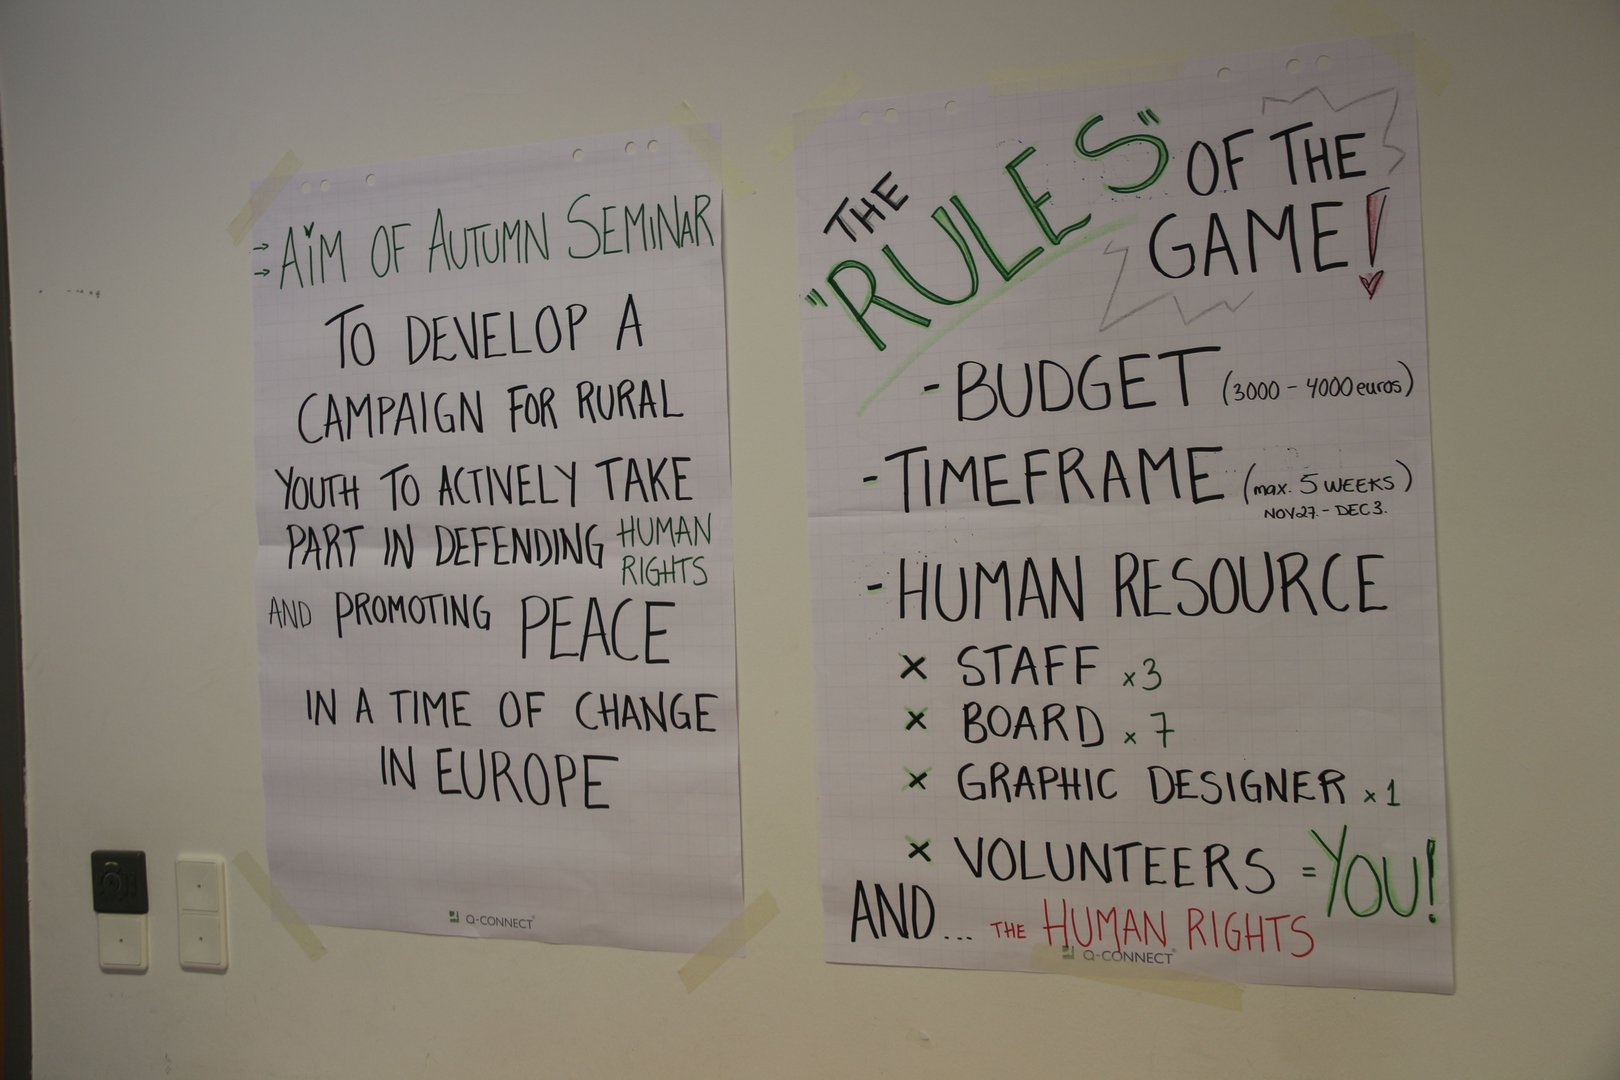 → AIM OF AUTUMN SEMINAR
→
TO DEVELOP A
CAMPAIGN FOR RURAL
YOUTH TO ACTIVELY TAKE
PART IN DEFENDING HUMAN
RIGHTS
AND PROMOTING PEACE
IN A TIME OF CHANGE
IN EUROPE
Q-CONNECT
THE "RULES" OF THE
GAME!
- BUDGET (3000 - 4000 euros)
- TIMEFRAME (max. 5 WEEKS)
NOV 27. - DEC 3.
- HUMAN RESOURCE
× STAFF × 3
× BOARD × 7
× GRAPHIC DESIGNER × 1
× VOLUNTEERS = YOU!
AND... THE HUMAN RIGHTS
Q-CONNECT